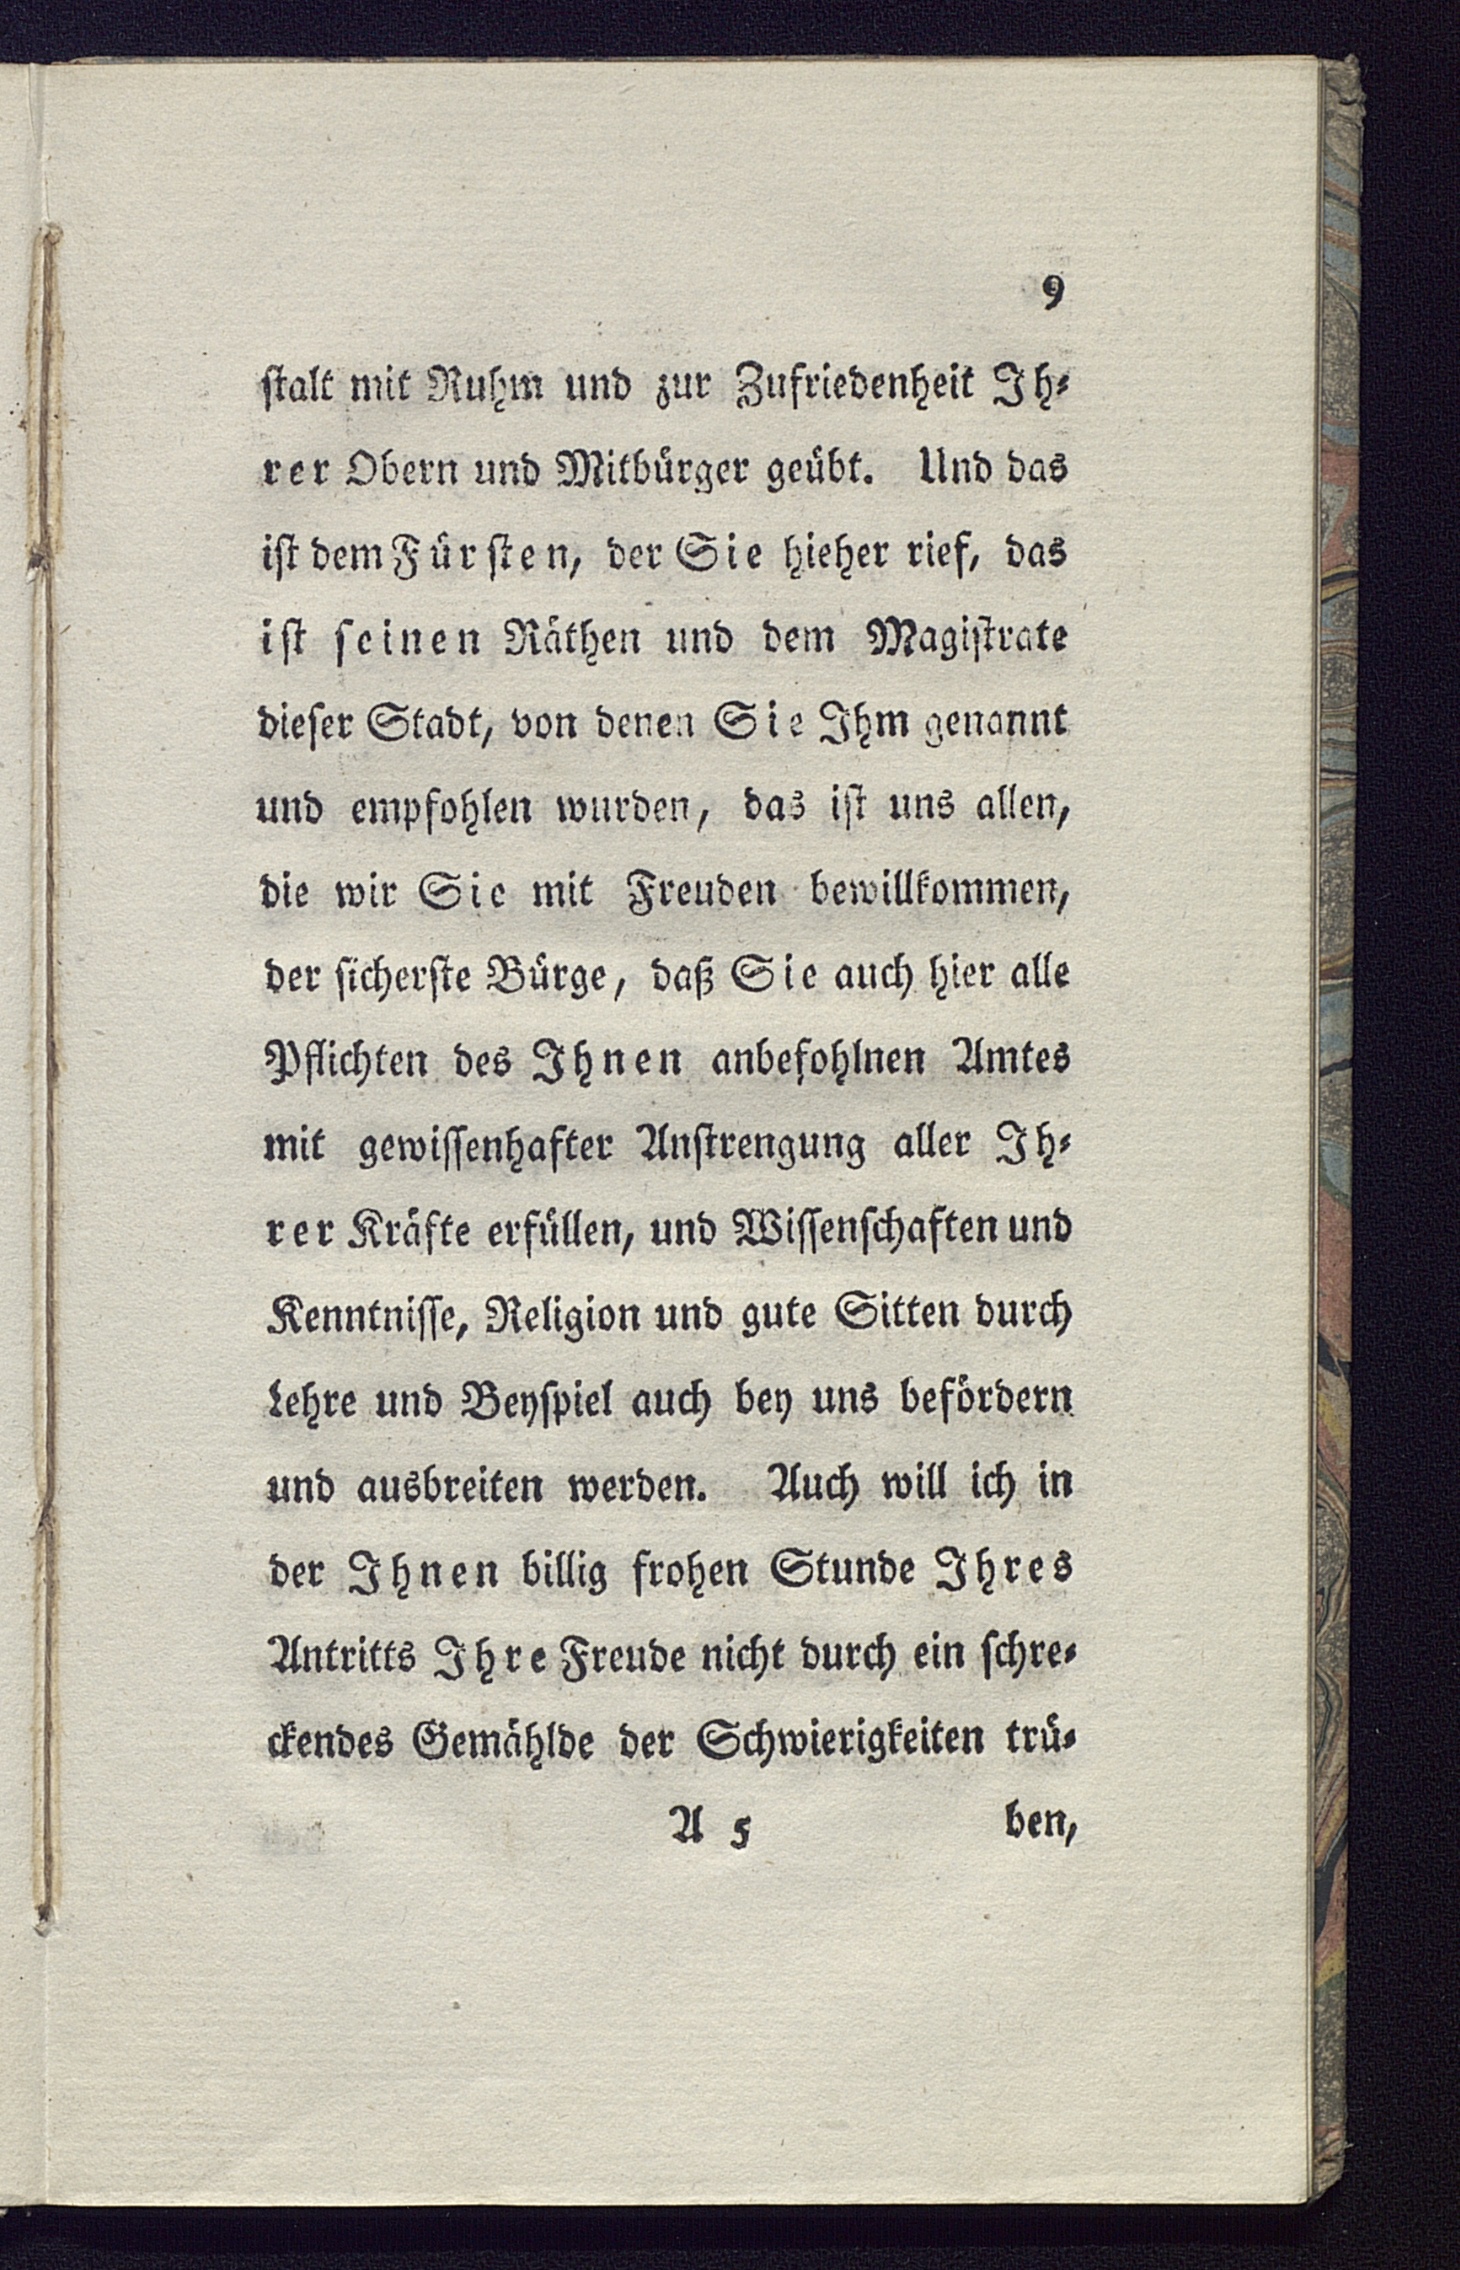 9
ſtalt mit Ruhm und zur Zufriedenheit Ih⸗
rer Obern und Mitbürger geübt. Und das
iſt dem Fürſten, der Sie hieher rief, das
iſt ſeinen Räthen und dem Magiſtrate
dieſer Stadt, von denen Sie Ihm genannt
und empfohlen wurden, das iſt uns allen,
die wir Sie mit Freuden bewillkommen,
der ſicherſte Bürge, daß Sie auch hier alle
Pflichten des Ihnen anbefohlnen Amtes
mit gewiſſenhafter Anſtrengung aller Ih⸗
rer Kräfte erfüllen, und Wiſſenſchaften und
Kenntniſſe, Religion und gute Sitten durch
Lehre und Beyſpiel auch bey uns befördern
und ausbreiten werden. Auch will ich in
der Ihnen billig frohen Stunde Ihres
Antritts Ihre Freude nicht durch ein ſchre⸗
ckendes Gemählde der Schwierigkeiten trü⸗
A 5 ben,